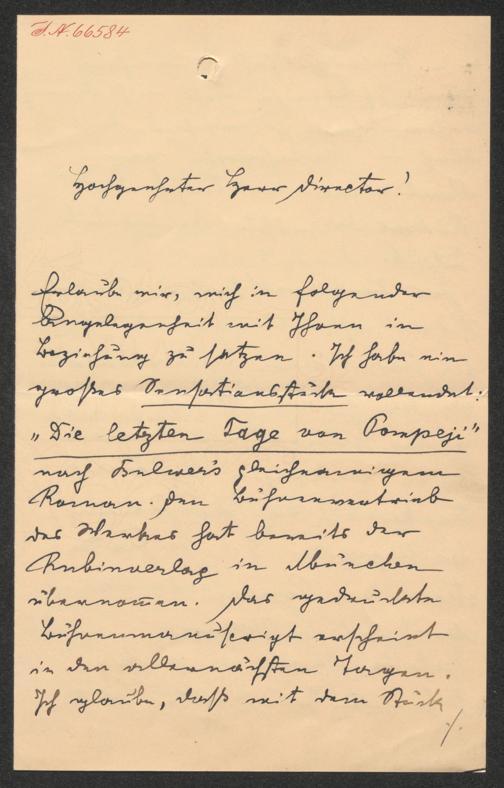 I.N. 66584
Hochgeehrter Herr Director!
Erlaube mir, mich in folgender
Angelegenheit mit Ihnen in
Beziehung zu setzen. Ich habe ein
großes Sensationsstück vollendet:
"Die letzten Tage von Pompeji"
nach Bulwer's gleichnamigem
Roman. Den Bühnenvertrieb
des Werkes hat bereits der
Rubinverlag in München
übernom̄en. Das gedruckte
Bühnenmanuscript erscheint
in den allernächsten Tagen.
Ich glaube, daß mit dem Stück
./.